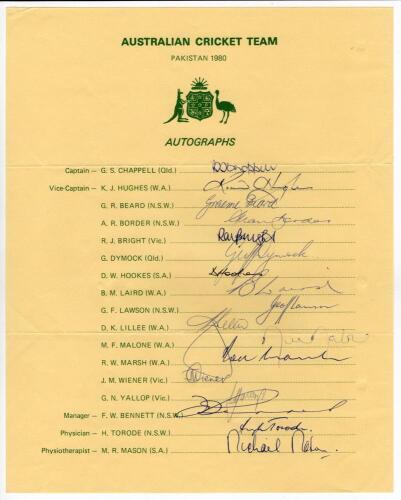 AUSTRALIAN CRICKET TEAM
PAKISTAN 1980
AUTOGRAPHS
Captain — G. S. CHAPPELL (Qld.)
Vice-Captain — K. J. HUGHES (W.A.)
G. R. BEARD (N.S.W.) Graeme Beard
A. R. BORDER (N.S.W.)
R. J. BRIGHT (Vic.) Ray Bright
G. DYMOCK (Qld.) Geoff Dymock
D. W. HOOKES (S.A.) D Hookes
B. M. LAIRD (W.A.) B Laird
G. F. LAWSON (N.S.W.) Geoff Lawson
D. K. LILLEE (W.A.)
M. F. MALONE (W.A.)
R. W. MARSH (W.A.)
J. M. WIENER (Vic.)
G. N. YALLOP (Vic.)
Manager — F. W. BENNETT (N.S.W.)
Physician — H. TORODE (N.S.W.) Hugh Torode
Physiotherapist — M. R. MASON (S.A.) Michael Mason